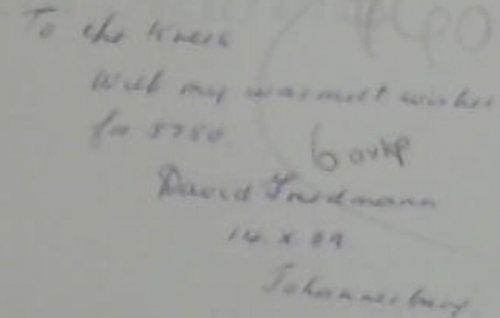 To the
With my warmest wishes
for 5750.
David Friedmann
14 X 89
Johannesburg